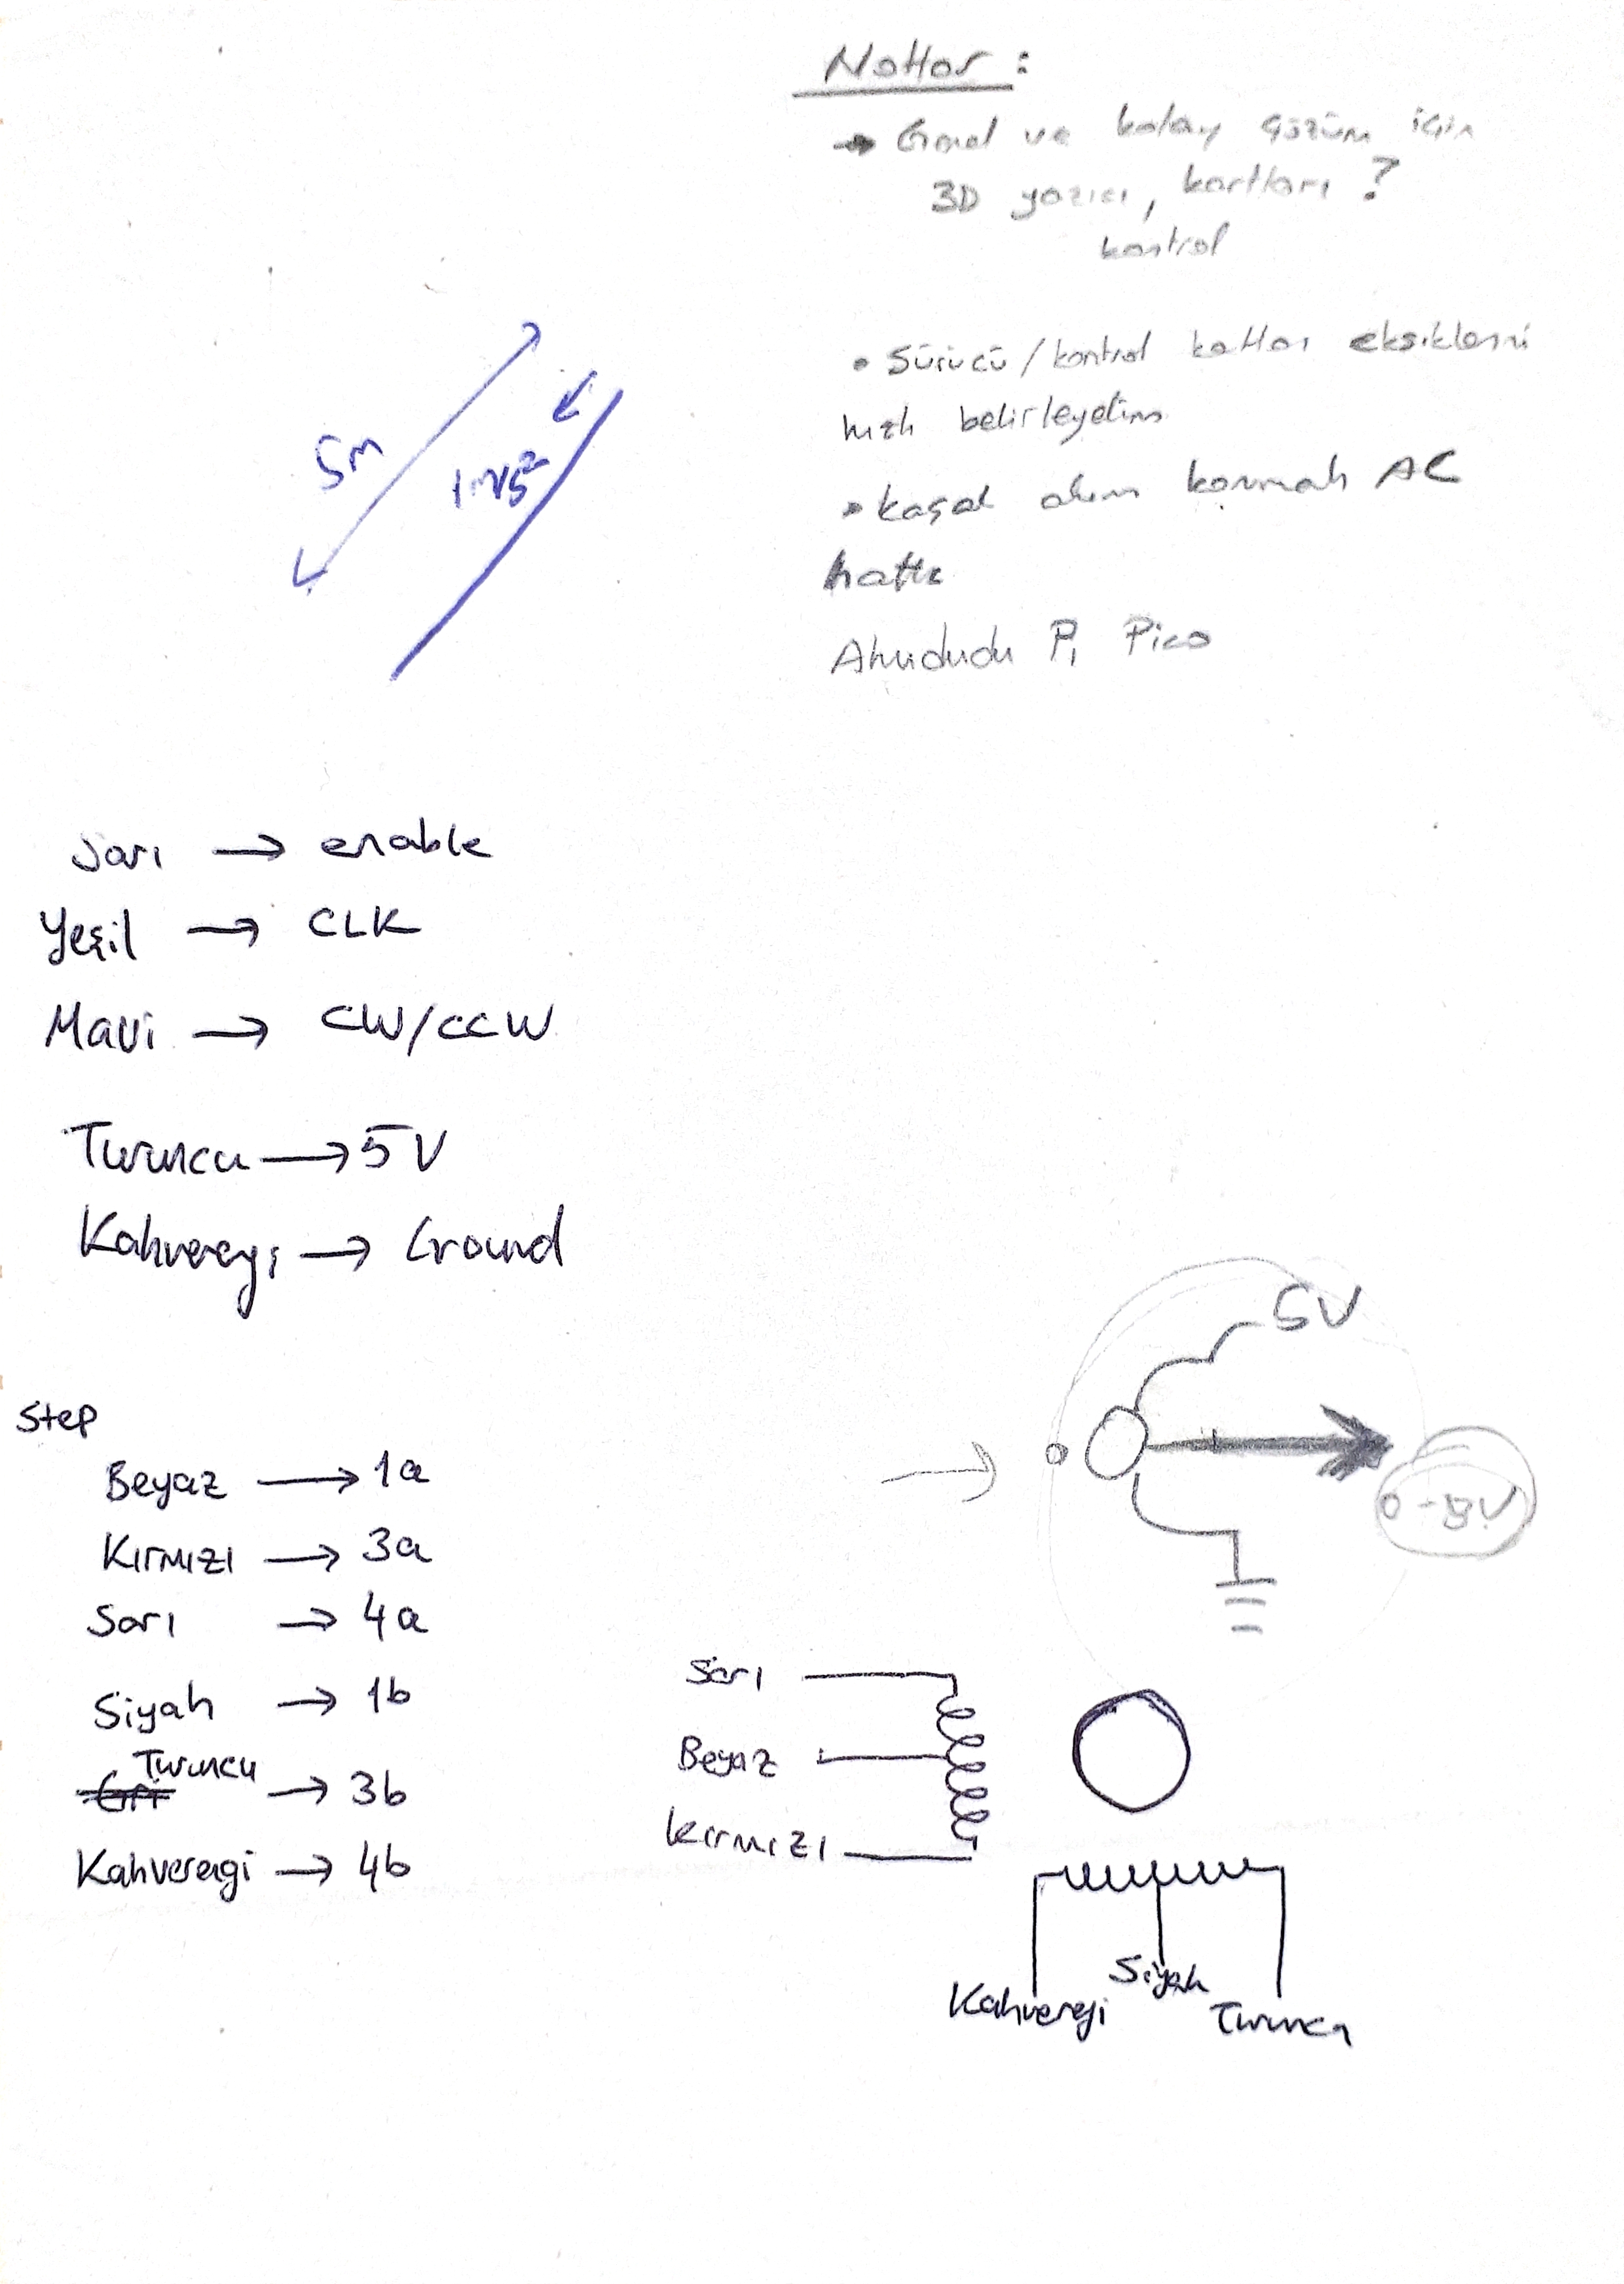 Notlar :
→ Genel ve kolay çözüm için
3D yazıcı, kartları ?
kontrol
• Sürücü/kontrol katları eksiklerini
hızlı belirleyelim
• Kaçak akım koruması AC
hattı
Ahududu Pi Pico
5m
1m/s²
Sarı → enable
Yeşil → CLK
Mavi → CW/CCW
Turuncu → 5V
Kahverengi → Ground
5V
0-5V
Step
Beyaz → 1a
Kırmızı → 3a
Sarı → 4a
Siyah → 1b
Turuncu → 3b
Kahverengi → 4b
Sarı
Beyaz
Kırmızı
Kahverengi
Siyah
Turuncu